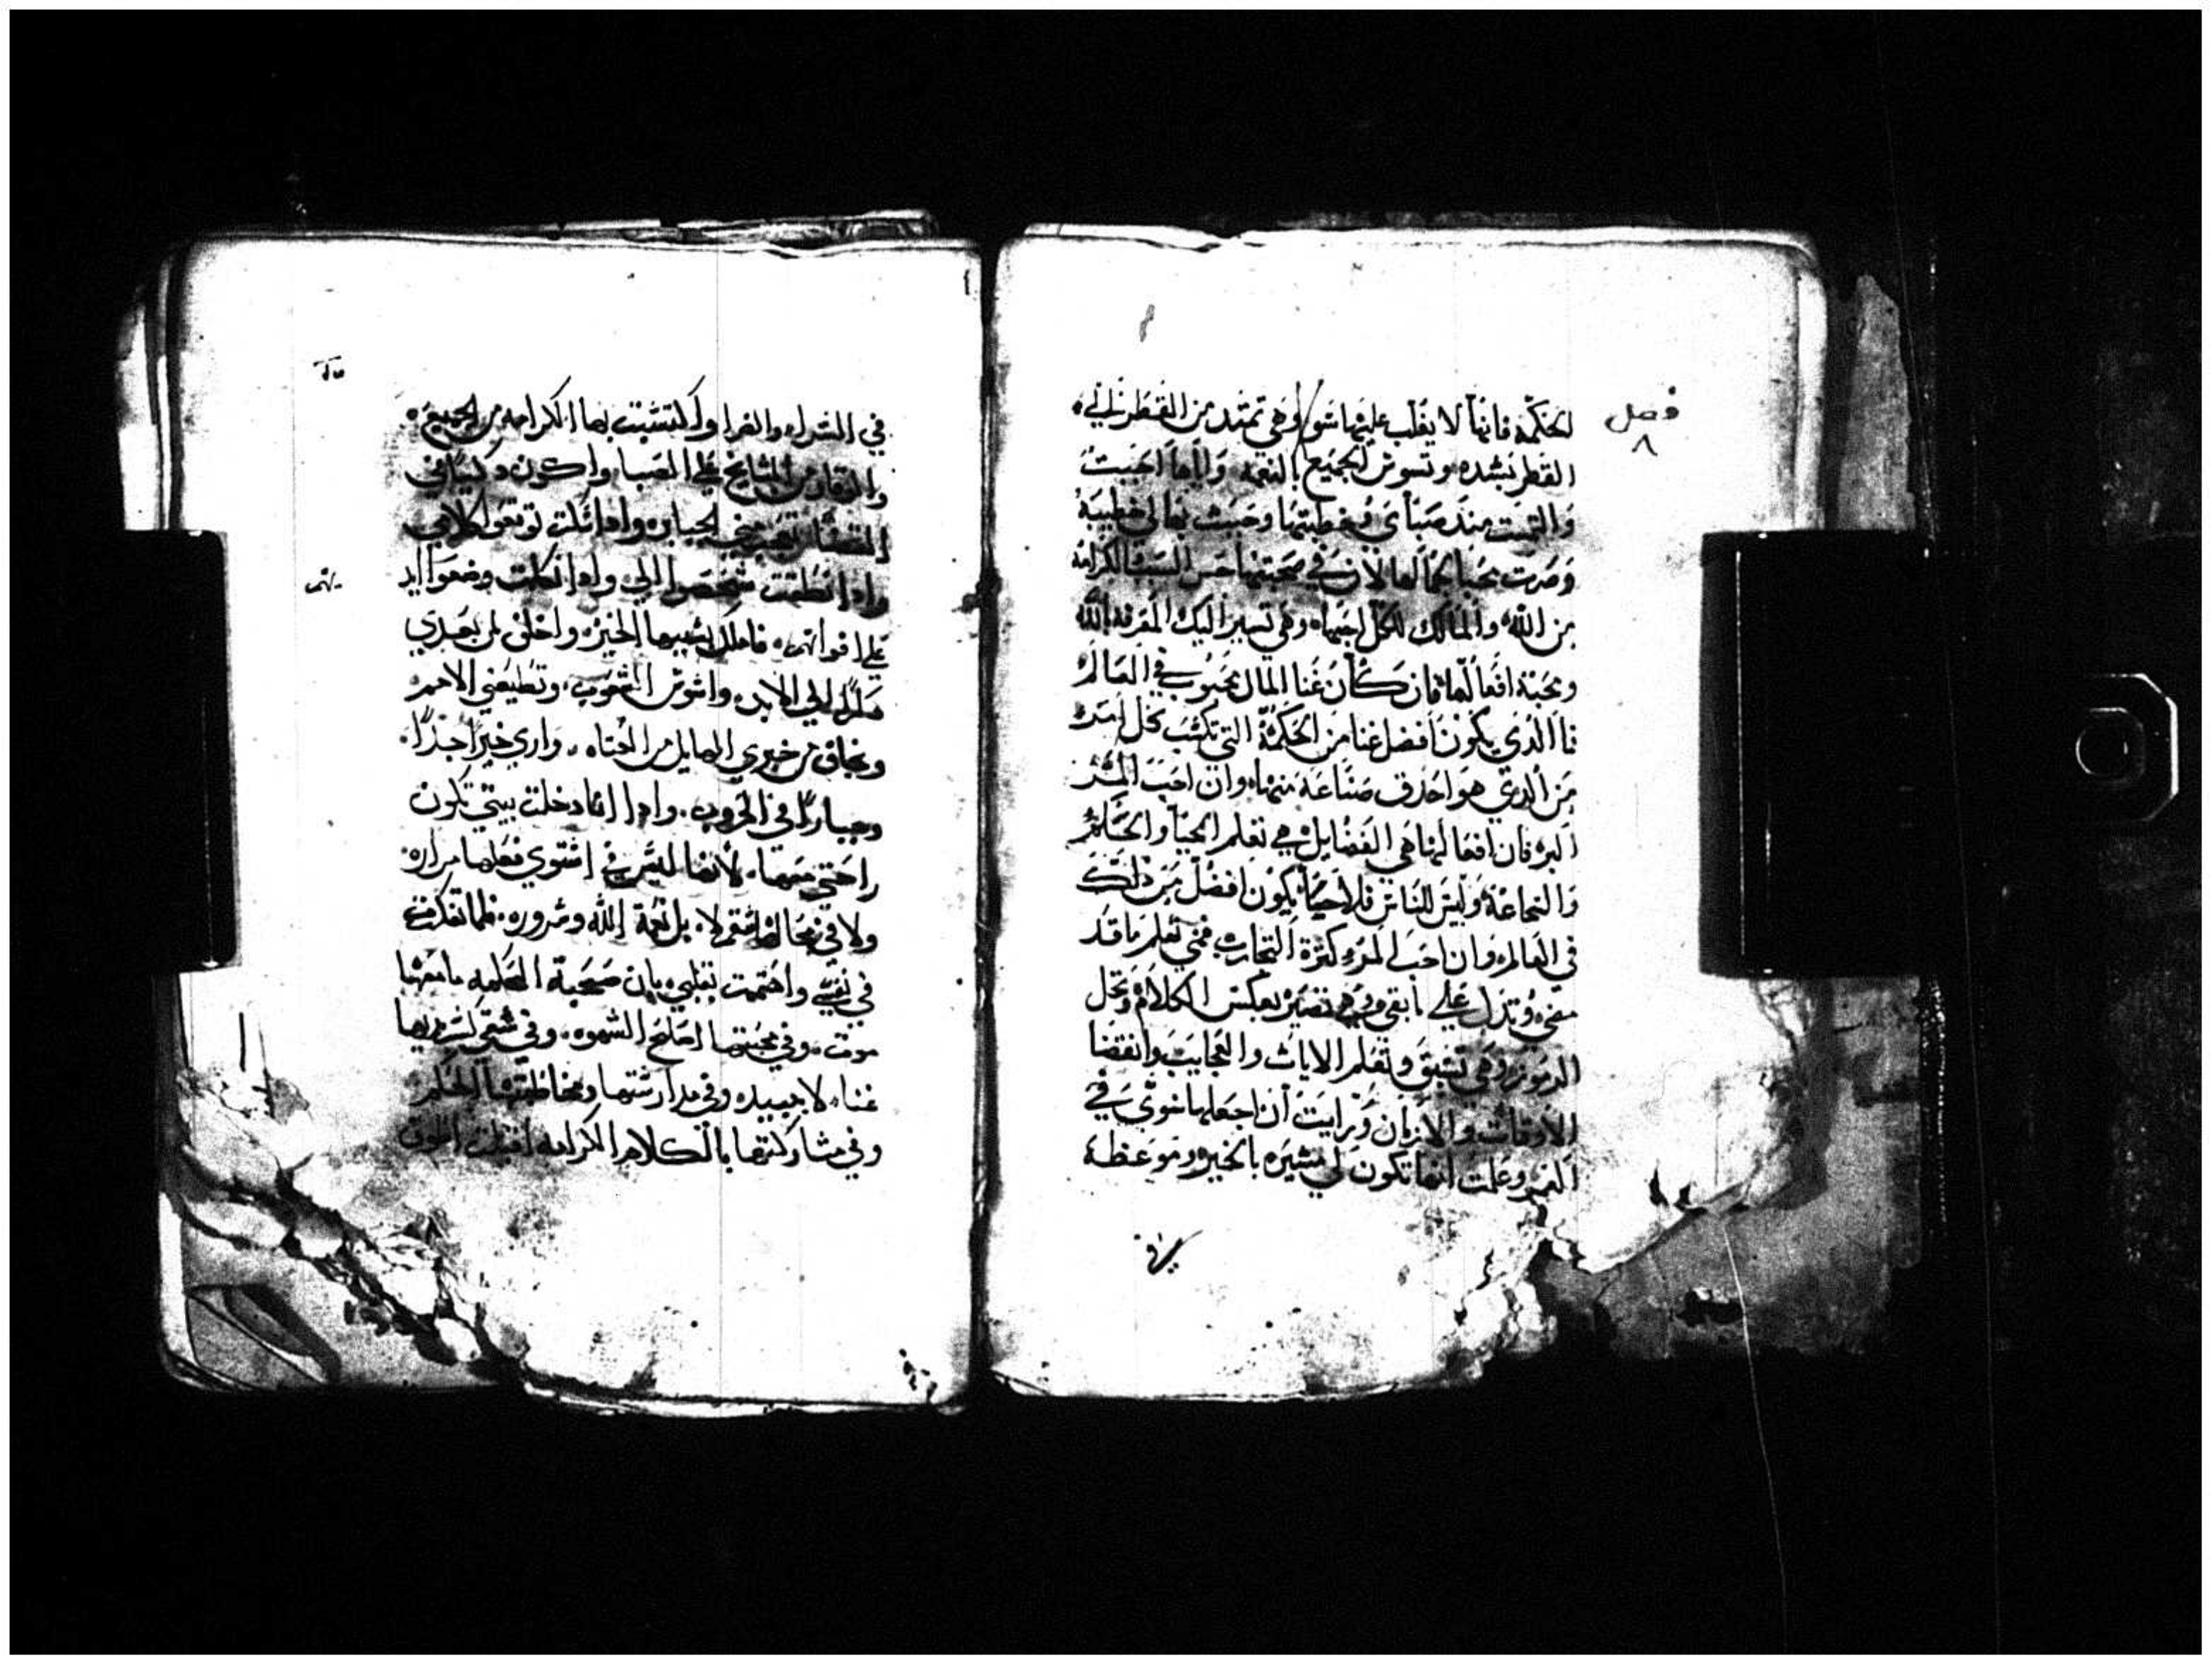 فصل
٨
الحكمة فانها لا يغلب عليها شو وهي تمتد من القطر الي
القطر بشده وتسوس الجميع بالنعمه واياها احببت
والتمست منذ صباي خطبتها وحبيت بها لي خطيبة
وصرت محبا لجمالها لان في صحبتها حسن النسب الكرامه
من الله والمالك للكل احبها وهي تسير اليك المعرفه بالله
ومحبة افعالها فان كان غنا المال محبوب في العالم
فا الذي يكون افضل غنا من الحكمة التي تكتسب بكل
من الذي هو احذق صناعة منها وان احب المر
البر فان افعالها هي الفضايل هي تعلم الحيا والحكم
والشجاعة وليس للناس فلاحيا يكون افضل من ذلك
في العالم وان احب المر كثرة التجارب فهي تعلم ما قد
مضي وتدل علي ما بقي وهي تفسير بعكس الكلام وتحل
الرموز وهي تسبق وتعلم الايات والعجايب وانقضا
الاوقات والازمان ورايت ان اجعلها شوي في
العمر وعلمت انها تكون لي مشيره بالخير وموعظة
في السراء والضرا واكتسبت بها الكرامه من الجميع
والوقار من المشايخ علي الصبا واكون ذكيا في
القضا تعجب مني الجبابره واذا سكت توقعوا كلامي
واذا نطقت شخصوا الي واذا تكلمت وضعوا ايد
علي افواههم فاملك بسببها الخيره واخلف لمن بعدي
ملكا الي الابد واسوس الشعوب وتطيعني الامم
وتخاف من خبري الهايل من العتاه واري خيرا جدا
وجبارا في الحروب واذا انا دخلت بيتي تكون
راحتي معها لانها ليس في اشتوي فعلها مراره
ولا في مخالطتها سقم لا بل نعمة الله وسروره فلما تفكرت
في نفسي واهتممت بقلبي بان صحبة الحكمه ما معها
موت وفي محبتها اصلح الشهوه وفي شقي لتدبيرها
غناء لا يبيد وفي مدارستها ومخاطبتها الحلم
وفي مشاركتها بالكلام الكرامه